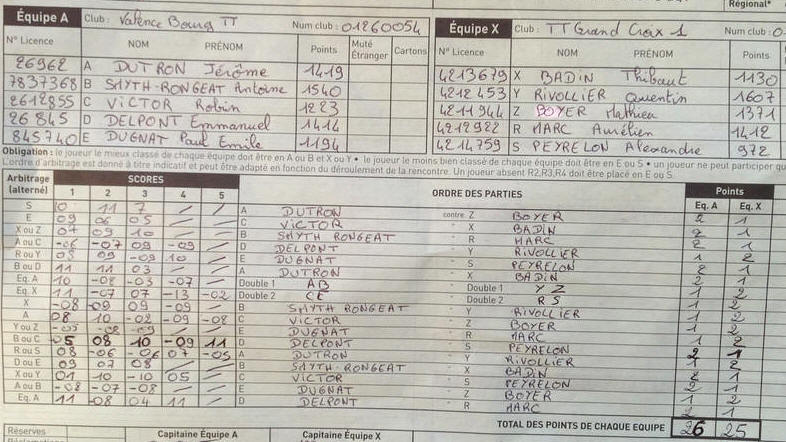 Régional*
Équipe A Club : Valence Bourg TT Num club : 01260054
Équipe X Club : TT Grand Croix 1 Num club : 0
N° Licence NOM PRÉNOM Points Muté Étranger Cartons
N° Licence NOM PRÉNOM Points
26962 A DUTRON Jérôme 1419
7837368 B SMYTH-RONGEAT Antoine 1540
2612855 C VICTOR Robin 1223
26845 D DELPONT Emmanuel 1414
845740 E DUGNAT Paul Emile 1194
4213679 X BADIN Thibaut 1130
4212453 Y RIVOLLIER Quentin 1607
4211944 Z BOYER Mathieu 1371
4212922 R MARC Aurélien 1412
4214759 S PEYRELON Alexandre 972
Obligation : le joueur le mieux classé de chaque équipe doit être en A ou B et X ou Y • le joueur le moins bien classé de chaque équipe doit être en E ou S • un joueur ne peut participer qu
L'ordre d'arbitrage est donné à titre indicatif et peut être adapté en fonction du déroulement de la rencontre. Un joueur absent R2,R3,R4 doit être placé en E ou S.
Arbitrage (alterné) SCORES ORDRE DES PARTIES Points
1 2 3 4 5 Eq. A Eq. X
S 11 7 A DUTRON contre Z BOYER 2 1
E 09 06 05 C VICTOR X BADIN
X ou Z 07 09 10 B SMYTH RONGEAT R MARC 2 1
A ou C -06 -07 09 -09 D DELPONT Y RIVOLLIER
R ou Y 09 -09 10 E DUGNAT S PEYRELON
B ou D 11 11 03 A DUTRON X BADIN
Eq. A 10 -08 -03 -07 Double 1 AB Double 1 YZ
Eq. X 11 -07 07 -13 -02 Double 2 CE Double 2 RS
X -08 09 09 -09 B SMYTH RONGEAT Y RIVOLLIER
A 08 10 -02 -09 -08 C VICTOR Z BOYER
Y ou Z E DUGNAT R MARC
B ou C 05 08 10 -09 11 D DELPONT S PEYRELON
R ou S 08 -06 -06 07 -05 A DUTRON Y RIVOLLIER
D ou E 09 07 08 B SMYTH-RONGEAT X BADIN
X ou Y 01 10 -10 05 C VICTOR S PEYRELON
A ou B -08 -07 -08 E DUGNAT Z BOYER
Eq. A 11 -08 04 11 D DELPONT R MARC
TOTAL DES POINTS DE CHAQUE ÉQUIPE 26 25
Réserves Capitaine Équipe A Capitaine Équipe X